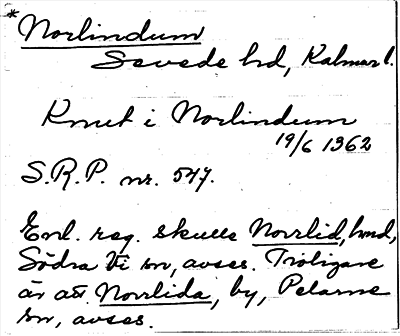 * Norlindum
Sevede hd, Kalmar l.
Knut i Norlindum
19/6 1362
S.R.P. nr. 547.
Enl. reg. skulle Norrlid, hmd,
Södra Vi sn, avses. Troligare
är att Norrlida, by, Pelarne
sn, avses.